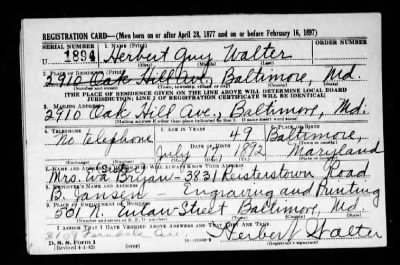 REGISTRATION CARD—(Men born on or after April 28, 1877 and on or before February 16, 1897)
SERIAL NUMBER 1. NAME (Print) ORDER NUMBER
U 1894 Herbert Guy Walter
2. PLACE OF RESIDENCE (Print)
2910 Oak Hill Ave, Baltimore, Md.
(Number and street) (Town, township, village, or city) (County) (State)
[THE PLACE OF RESIDENCE GIVEN ON THE LINE ABOVE WILL DETERMINE LOCAL BOARD
JURISDICTION; LINE 2 OF REGISTRATION CERTIFICATE WILL BE IDENTICAL]
3. MAILING ADDRESS
2910 Oak Hill Ave., Baltimore, Md.
[Mailing address if other than place indicated on line 2. If same insert word same]
4. TELEPHONE 5. AGE IN YEARS 6. PLACE OF BIRTH
No telephone 49 Baltimore,
DATE OF BIRTH
July 1892 Maryland
(Exchange) (Number) (Mo.) (Day) (Yr.) (State or country)
7. NAME AND ADDRESS OF PERSON WHO WILL ALWAYS KNOW YOUR ADDRESS
Mrs. 3831 Reisterstown Road
8. EMPLOYER'S NAME AND ADDRESS
B. Jansen - Engraving and Printing
9. PLACE OF EMPLOYMENT OR BUSINESS
501 N. Eutaw Street Baltimore, Md.
(Number and street or R. F. D. number) (Town) (County) (State)
I AFFIRM THAT I HAVE VERIFIED ABOVE ANSWERS AND THAT THEY ARE TRUE.
Ferndale Ave.
Herbert Walter
D. S. S. Form 1
(Revised 4-1-42) (over) (Registrant's signature)